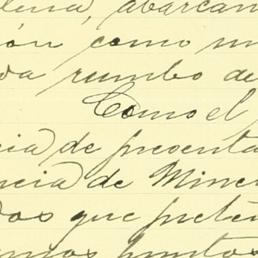 lena, abarcan
ión como un
da rumbo de
Como el
cia de presenta
ncia de Miner
dos que preten
puntos